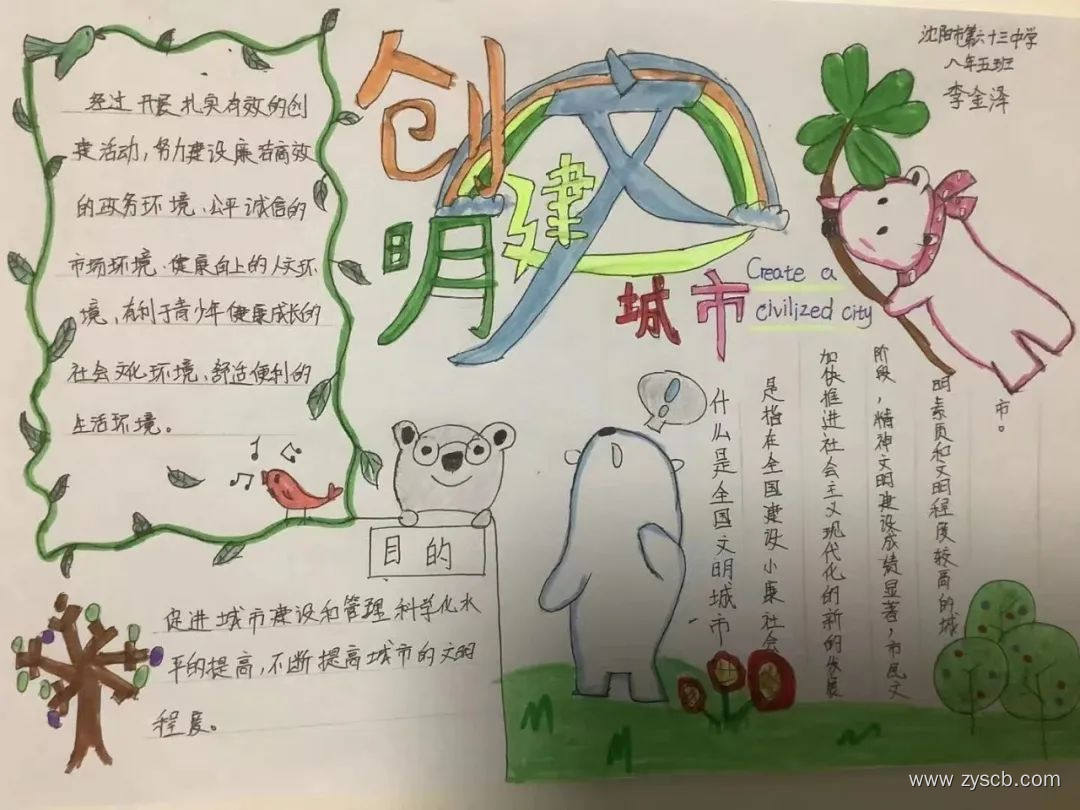 沈阳市第六十三中学
八年五班
李金泽
创建文
明
城市
Create a
civilized city
经过开展扎实有效的创
建活动，努力建设廉洁高效
的政务环境、公平诚信的
市场环境、健康向上的人文环
境、有利于青少年健康成长的
社会文化环境、舒适便利的
生活环境。
目的
促进城市建设和管理科学化水
平的提高，不断提高城市的文明
程度。
什么是全国文明城市
是指在全国建设小康社会
加快推进社会主义现代化的新的发展
阶段，精神文明建设成绩显著，市民文
明素质和文明程度较高的城
市。
www.zyscb.com